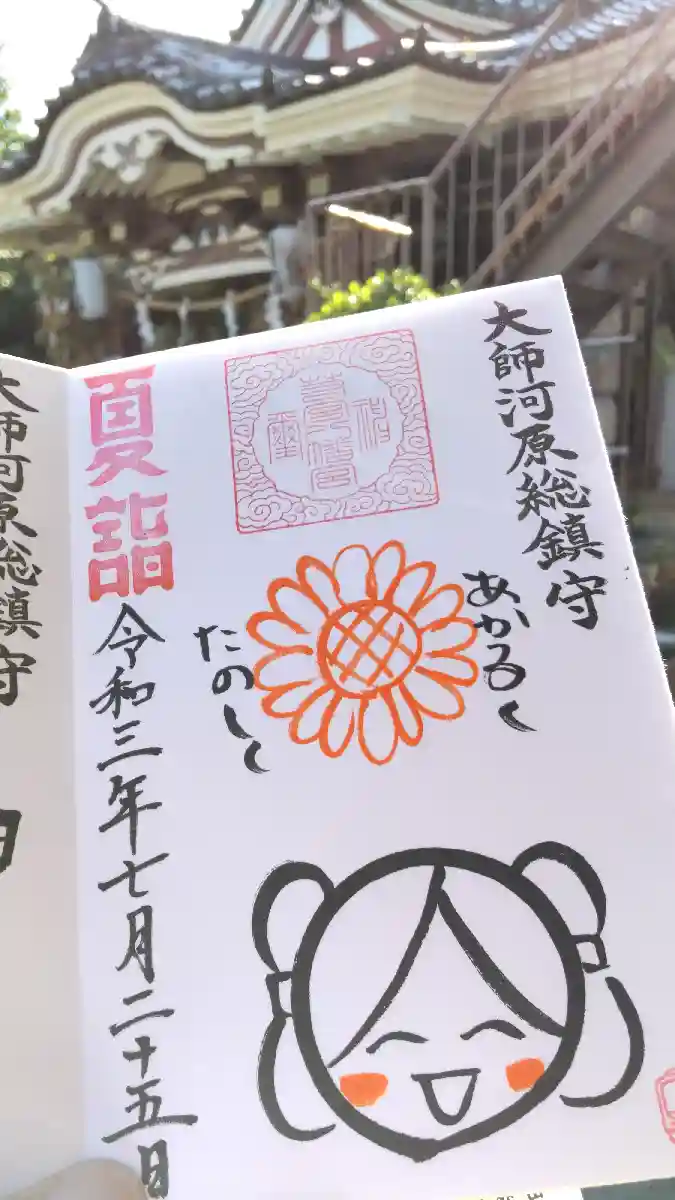 大師河原総鎮守
あかるく
たのしく
夏詣
令和三年七月二十五日
大師河原総鎮守